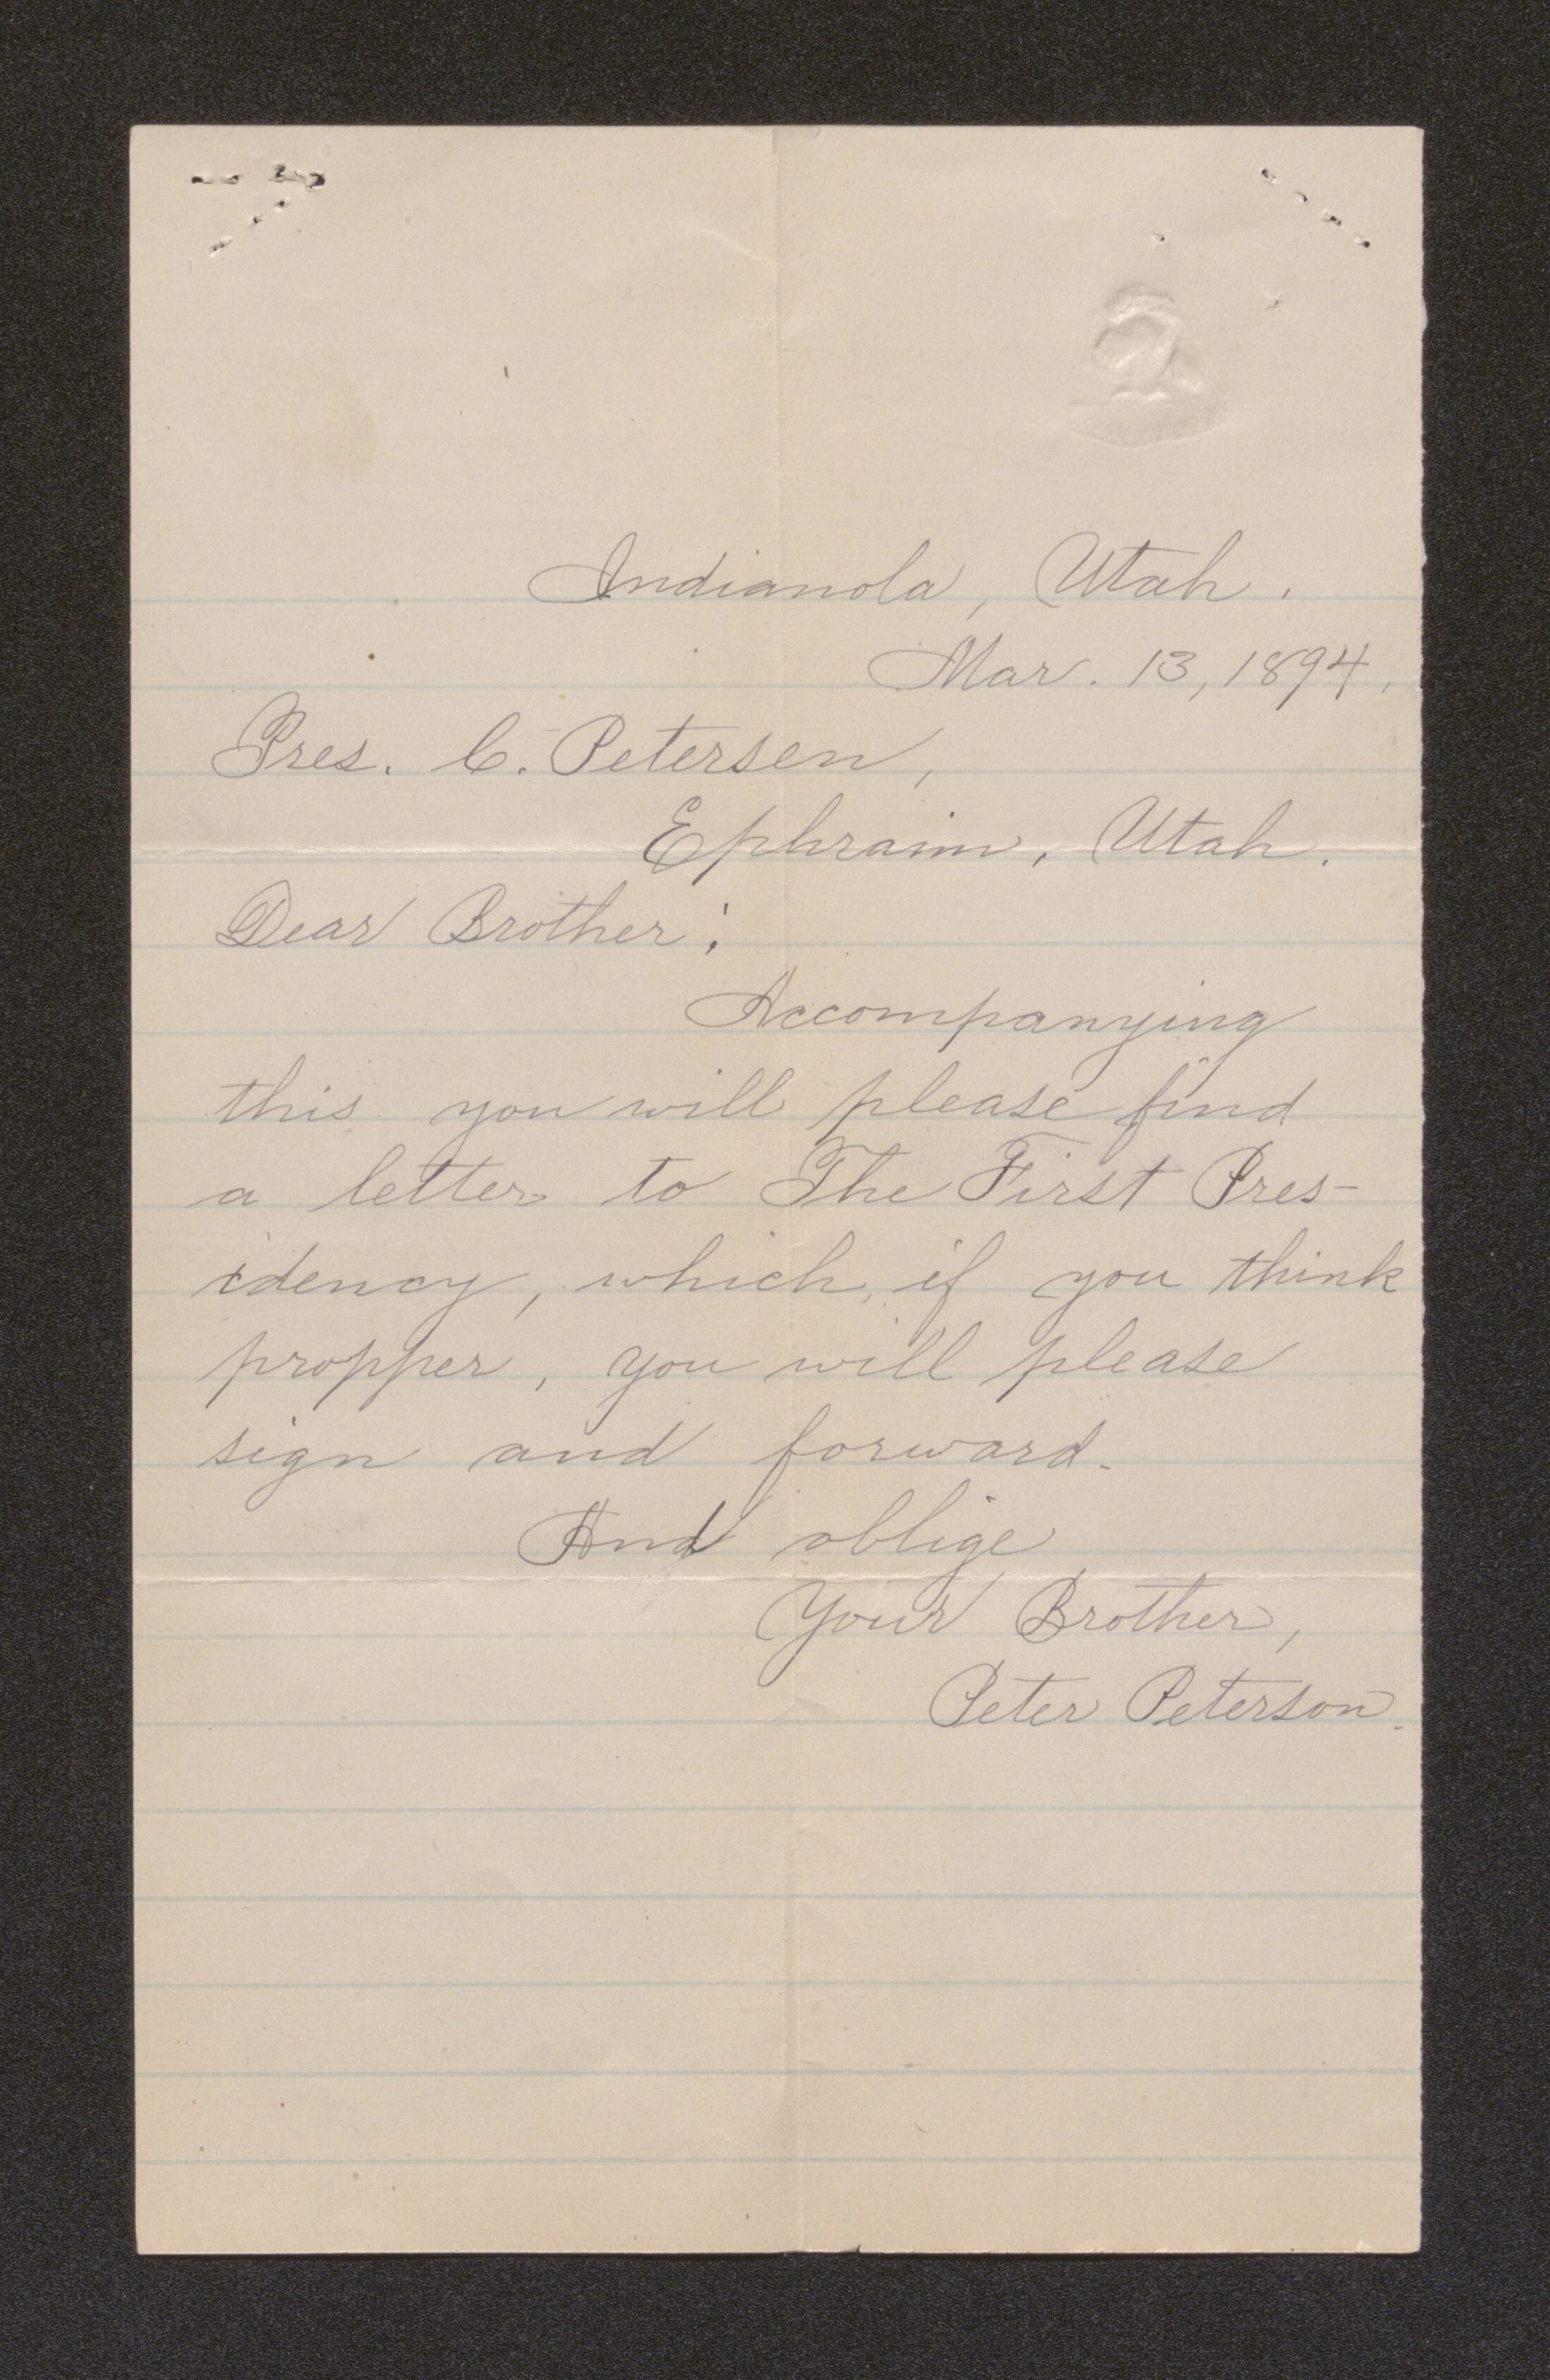 Indianola, Utah.
Mar. 13, 1894.
Pres. C. Petersen,
Ephraim, Utah.
Dear Brother:
Accompanying
this you will please find
a letter to The First Pres-
idency, which, if you think
propper, you will please
sign and forward.
And oblige
Your Brother,
Peter Peterson.